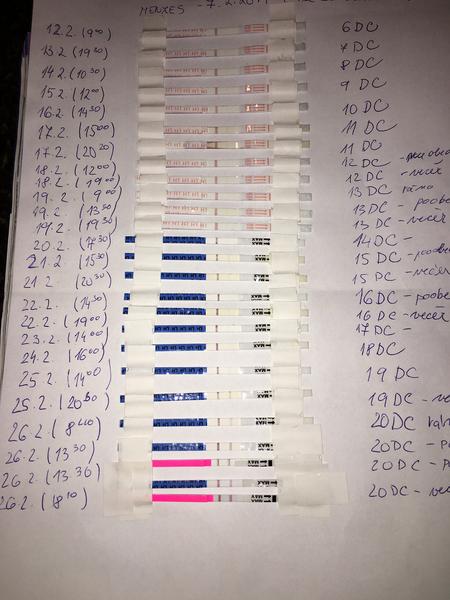 MENZES - 7.2.
12.2. (9⁰⁰) 6 DC
13.2 (19³⁰) 7 DC
14.2. (10³⁰) 8 DC
15.2. (12⁰⁰) 9 DC
16.2. (14³⁰) 10 DC
17.2. (15⁰⁰) 11 DC
17.2. (20²⁰) 11 DC
18.2. (12⁰⁰) 12 DC
18.2. (19⁰⁰) 12 DC - večer
19.2. (9⁰⁰) 13 DC ráno
19.2. (13³⁰) 13 DC - poobe
19.2. (19³⁰) 13 DC - večer
20.2. (17³⁰) 14 DC -
21.2. (15³⁰) 15 DC - poobe
21.2. (20³⁰) 15 DC - večer
22.2. (14³⁰) 16 DC - poobe
22.2. (19⁰⁰) 16 DC - večer
23.2. (14⁰⁰) 17 DC -
24.2. (16⁰⁰) 18 DC
25.2. (14⁰⁰) 19 DC
25.2. (20³⁰) 19 DC - ve
26.2. (8⁴⁰) 20 DC ráh
26.2. (13³⁰) 20 DC - po
26.2. (13.30) 20 DC - po
26.2. (18¹⁰) 20 DC - več
MAX